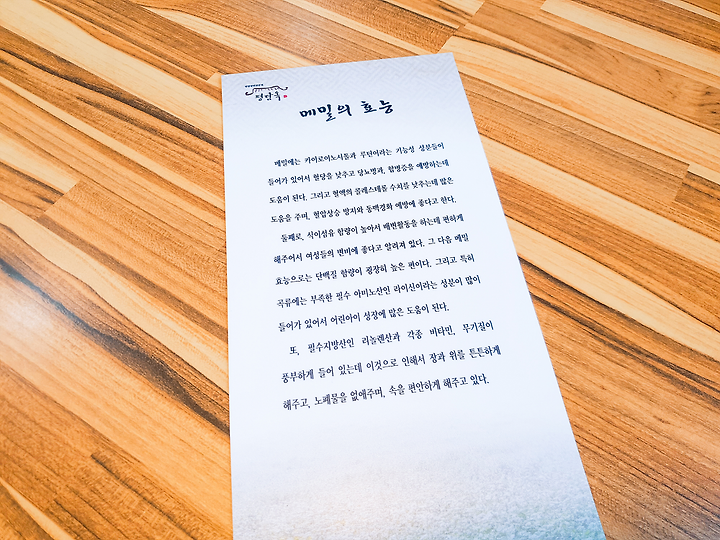 메밀의 효능
메밀에는 카이로이노시톨과 루틴이라는 기능성 성분들이
들어가 있어서 혈당을 낮추고 당뇨병과, 합병증을 예방하는데
도움이 된다. 그리고 혈액의 콜레스테롤 수치를 낮추는데 많은
도움을 주며, 혈압상승 방지와 동맥경화 예방에 좋다고 한다.
둘째로, 식이섬유 함량이 높아서 배변활동을 하는데 편하게
해주어서 여성들의 변비에 좋다고 알려져 있다. 그 다음 메밀
효능으로는 단백질 함량이 굉장히 높은 편이다. 그리고 특히
곡류에는 부족한 필수 아미노산인 라이신이라는 성분이 많이
들어가 있어서 어린아이 성장에 많은 도움이 된다.
또, 필수지방산인 리놀렌산과 각종 비타민, 무기질이
풍부하게 들어 있는데 이것으로 인해서 장과 위를 튼튼하게
해주고, 노폐물을 없애주며, 속을 편안하게 해주고 있다.